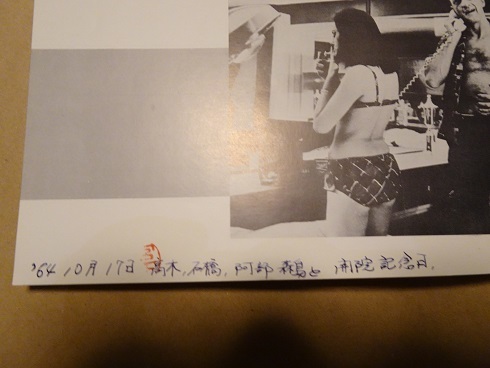 '64 10月17日 高木,石橋,阿部 森島と 開院記念日.